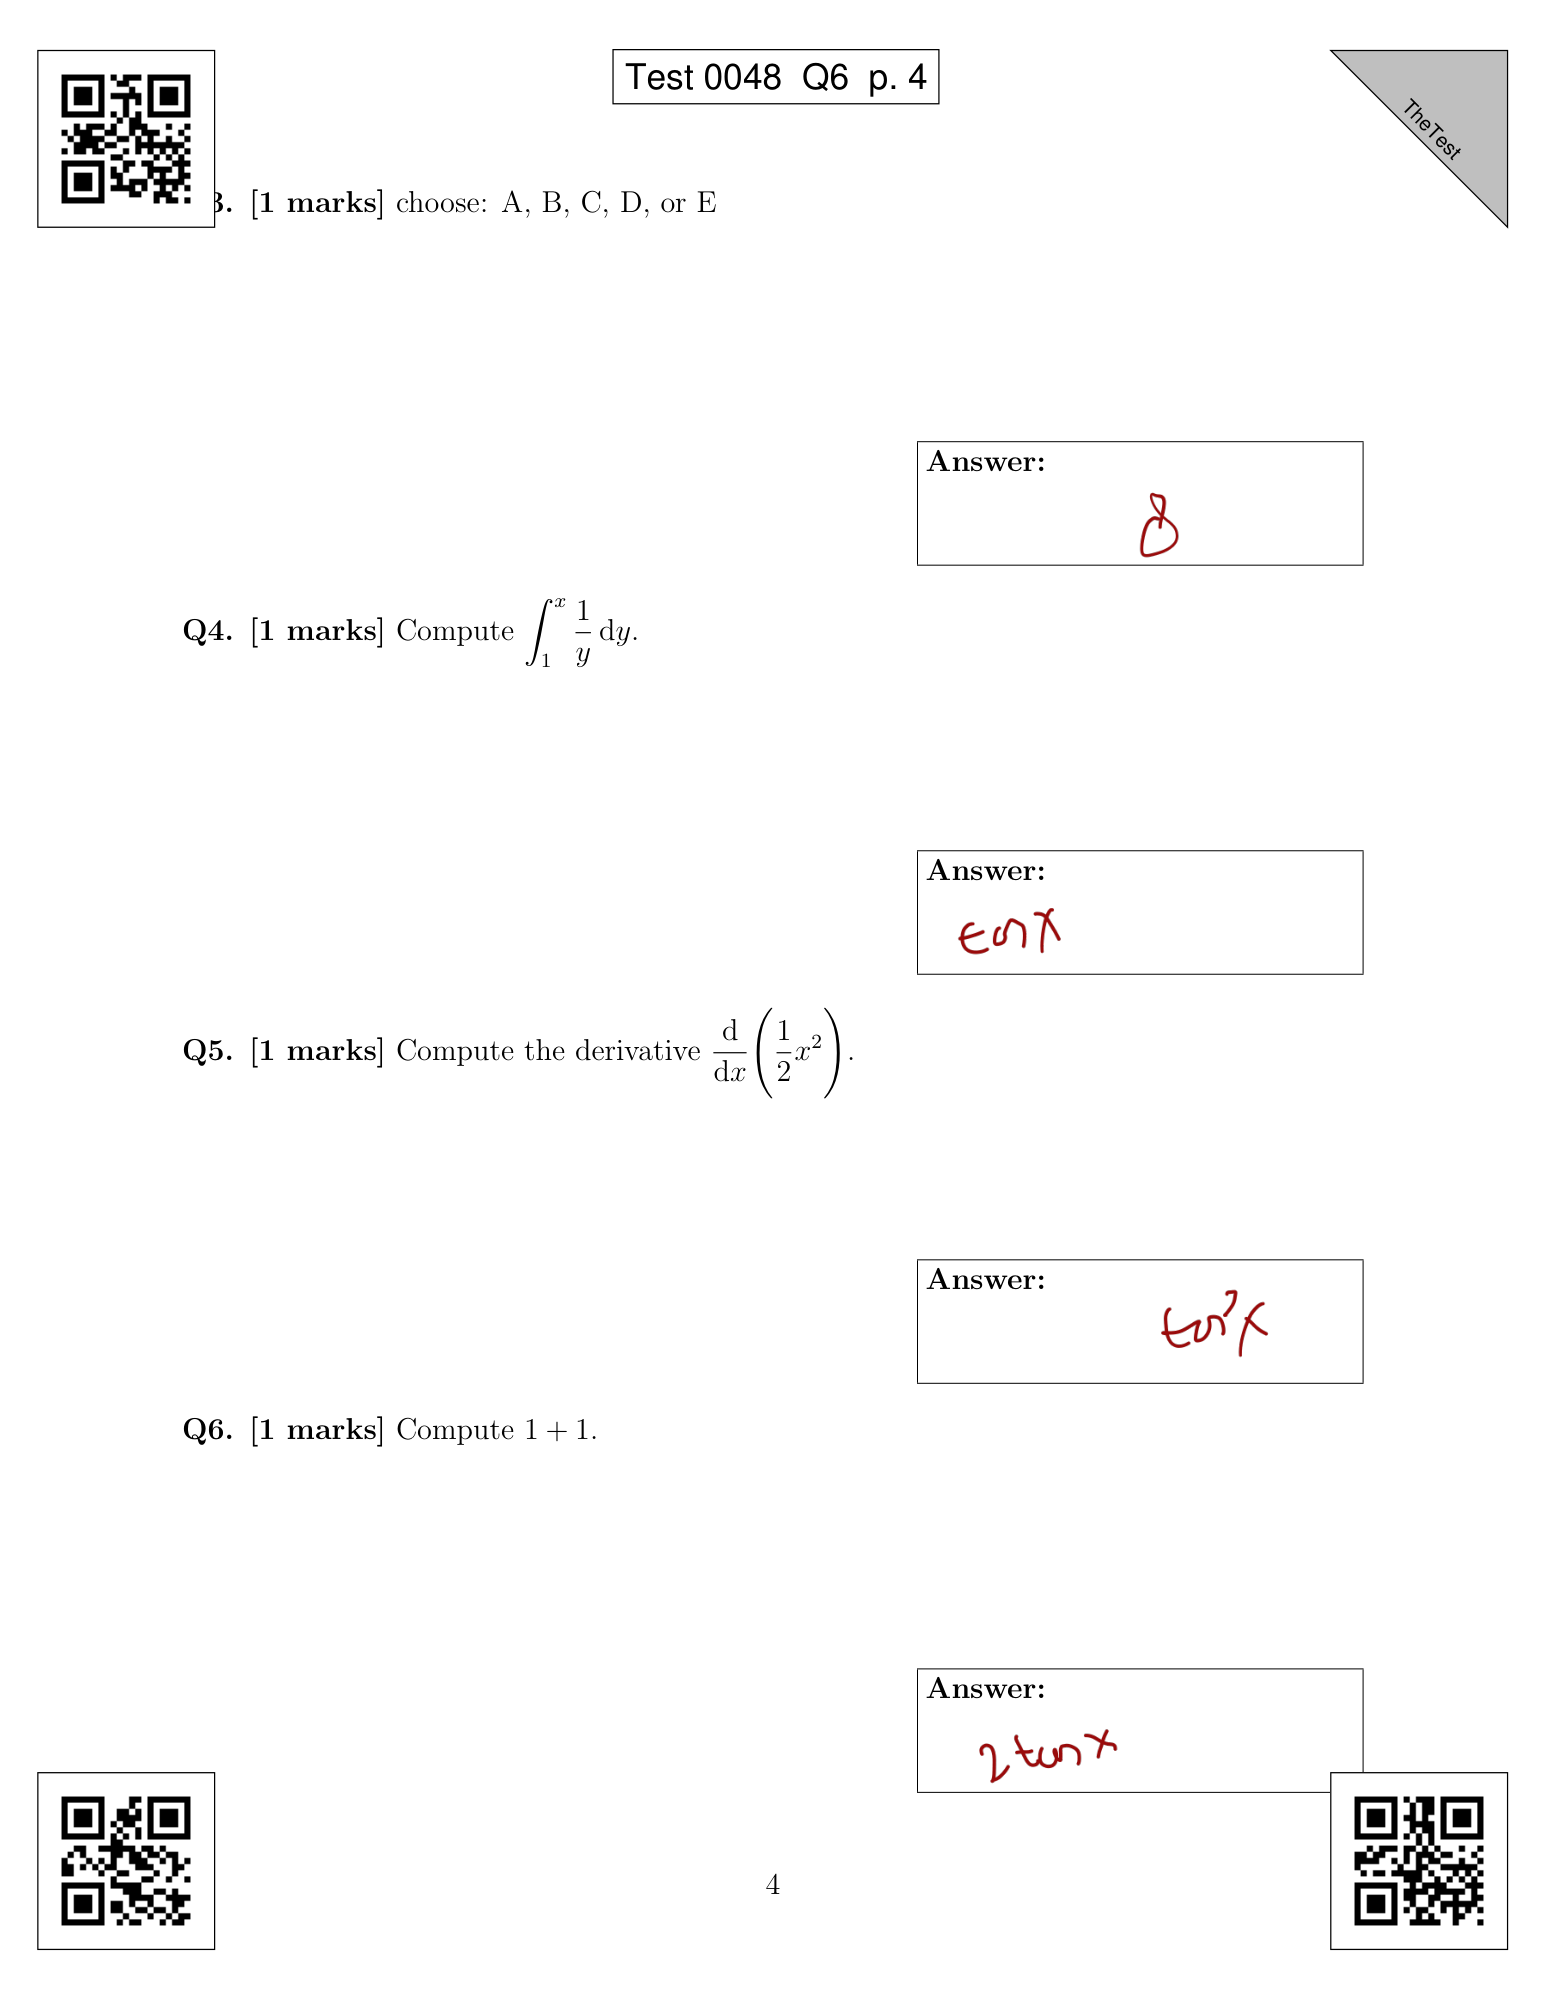 Test 0048 Q6 p. 4
TheTest
3. [1 marks] choose: A, B, C, D, or E
Answer:
8
Q4. [1 marks] Compute ∫₁ˣ 1/y dy.
Answer:
tan x
Q5. [1 marks] Compute the derivative d/dx (1/2 x²).
Answer:
tan² x
Q6. [1 marks] Compute 1 + 1.
Answer:
2 tan x
4